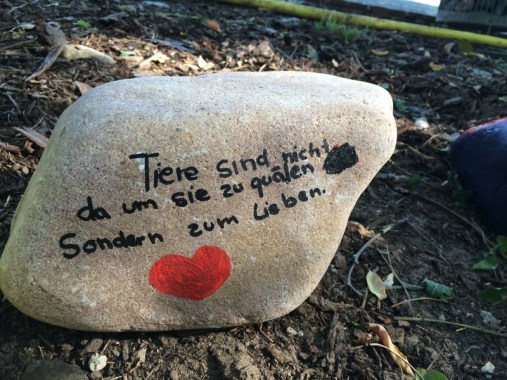 Tiere sind nicht
da um sie zu quälen
Sondern zum Lieben.